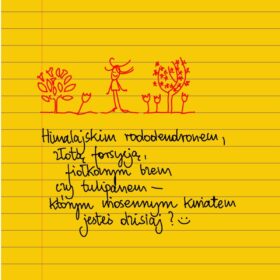 Himalajskim rododendronem,
złotą forsycją,
fiołkowym bzem
czy tulipanem –
którym wiosennym kwiatem
jesteś dzisiaj? :)